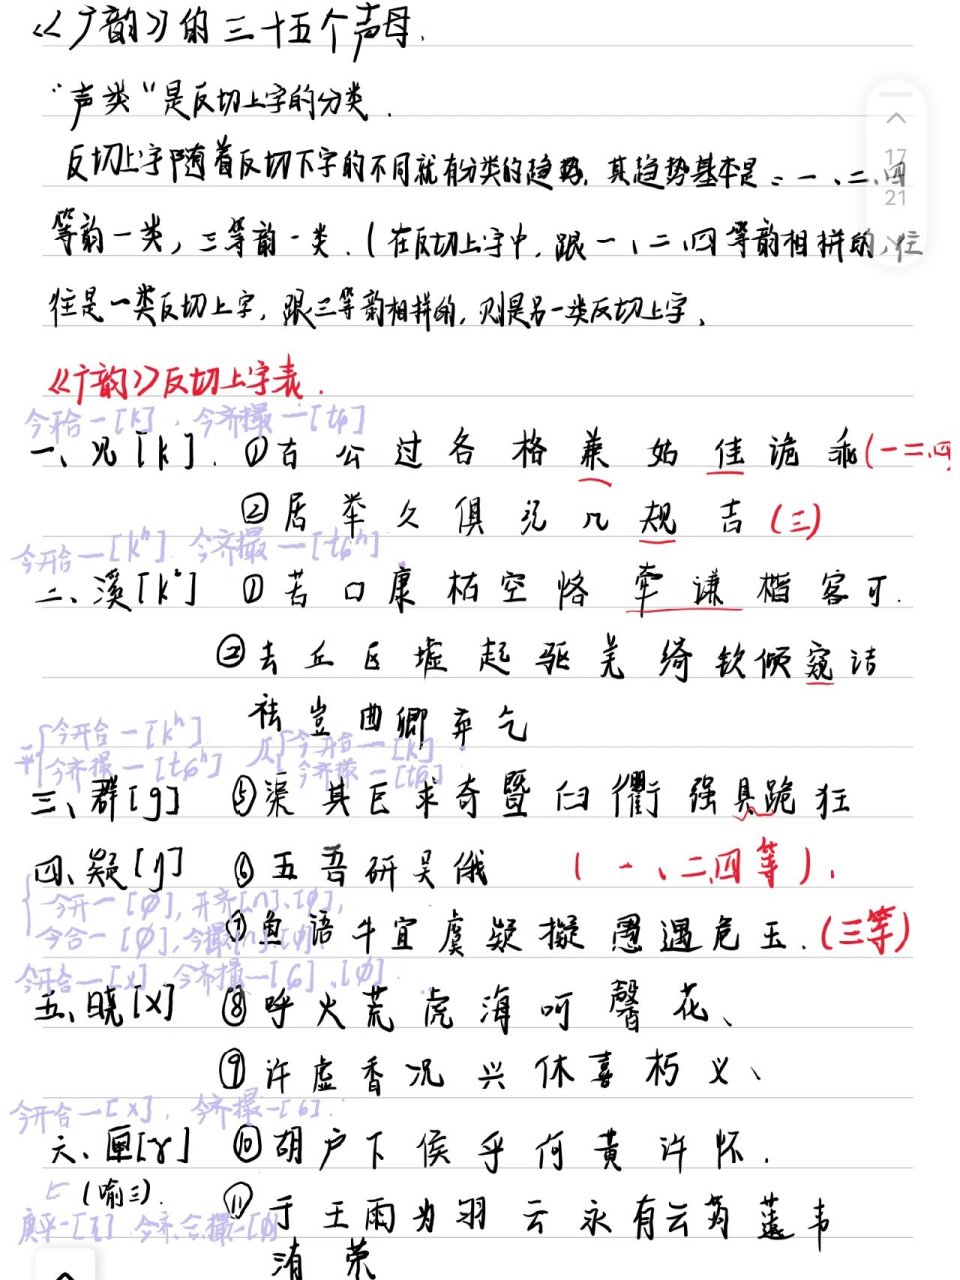 《广韵》的三十五个声母.
“声类”是反切上字的分类.
反切上字随着反切下字的不同就有分类的趋势.其趋势基本是:一、二、四
17
21
等韵一类,三等韵一类.(在反切上字中,跟一、二、四等韵相拼的,往
往是一类反切上字,跟三等韵相拼的,则是另一类反切上字、
《广韵》反切上字表.
今开合一[k].今齐撮一[tɕ]
一、见[k].①古公过各格兼姑佳诡乖(一二四
②居举久俱兄几规吉(三)
今开合一[kʰ]今齐撮一[tɕʰ]
二、溪[kʰ]①苦口康枯空恪牵谦楷客可.
②去丘区墟起驱羌绮钦倾窥诘
祛岂曲卿弃乞
平{今开合一[kʰ]仄{今开合一[k]
今齐撮一[tɕʰ]今齐撮一[tɕ]
三、群[g]⑤渠其巨求奇暨臼衢强具跪狂
四、疑[ŋ]⑥五吾研吴俄(一、二四等).
{今开一[ø],开齐[n].[ø],
今合一[ø],今撮
⑦鱼语牛宜虞疑拟愚遇危玉.(三等)
今开合一[x]今齐撮一[ɕ].[ø]
五、晓[x]⑧呼火荒虎海呵馨花、
⑨许虚香况兴休喜朽义、
今开合一[x].今齐撮一[ɕ].
六、匣[ɣ]⑩胡户下侯乎何黄许怀.
(喻三).⑪于王雨为羽云永有云筠薳韦
洧荣